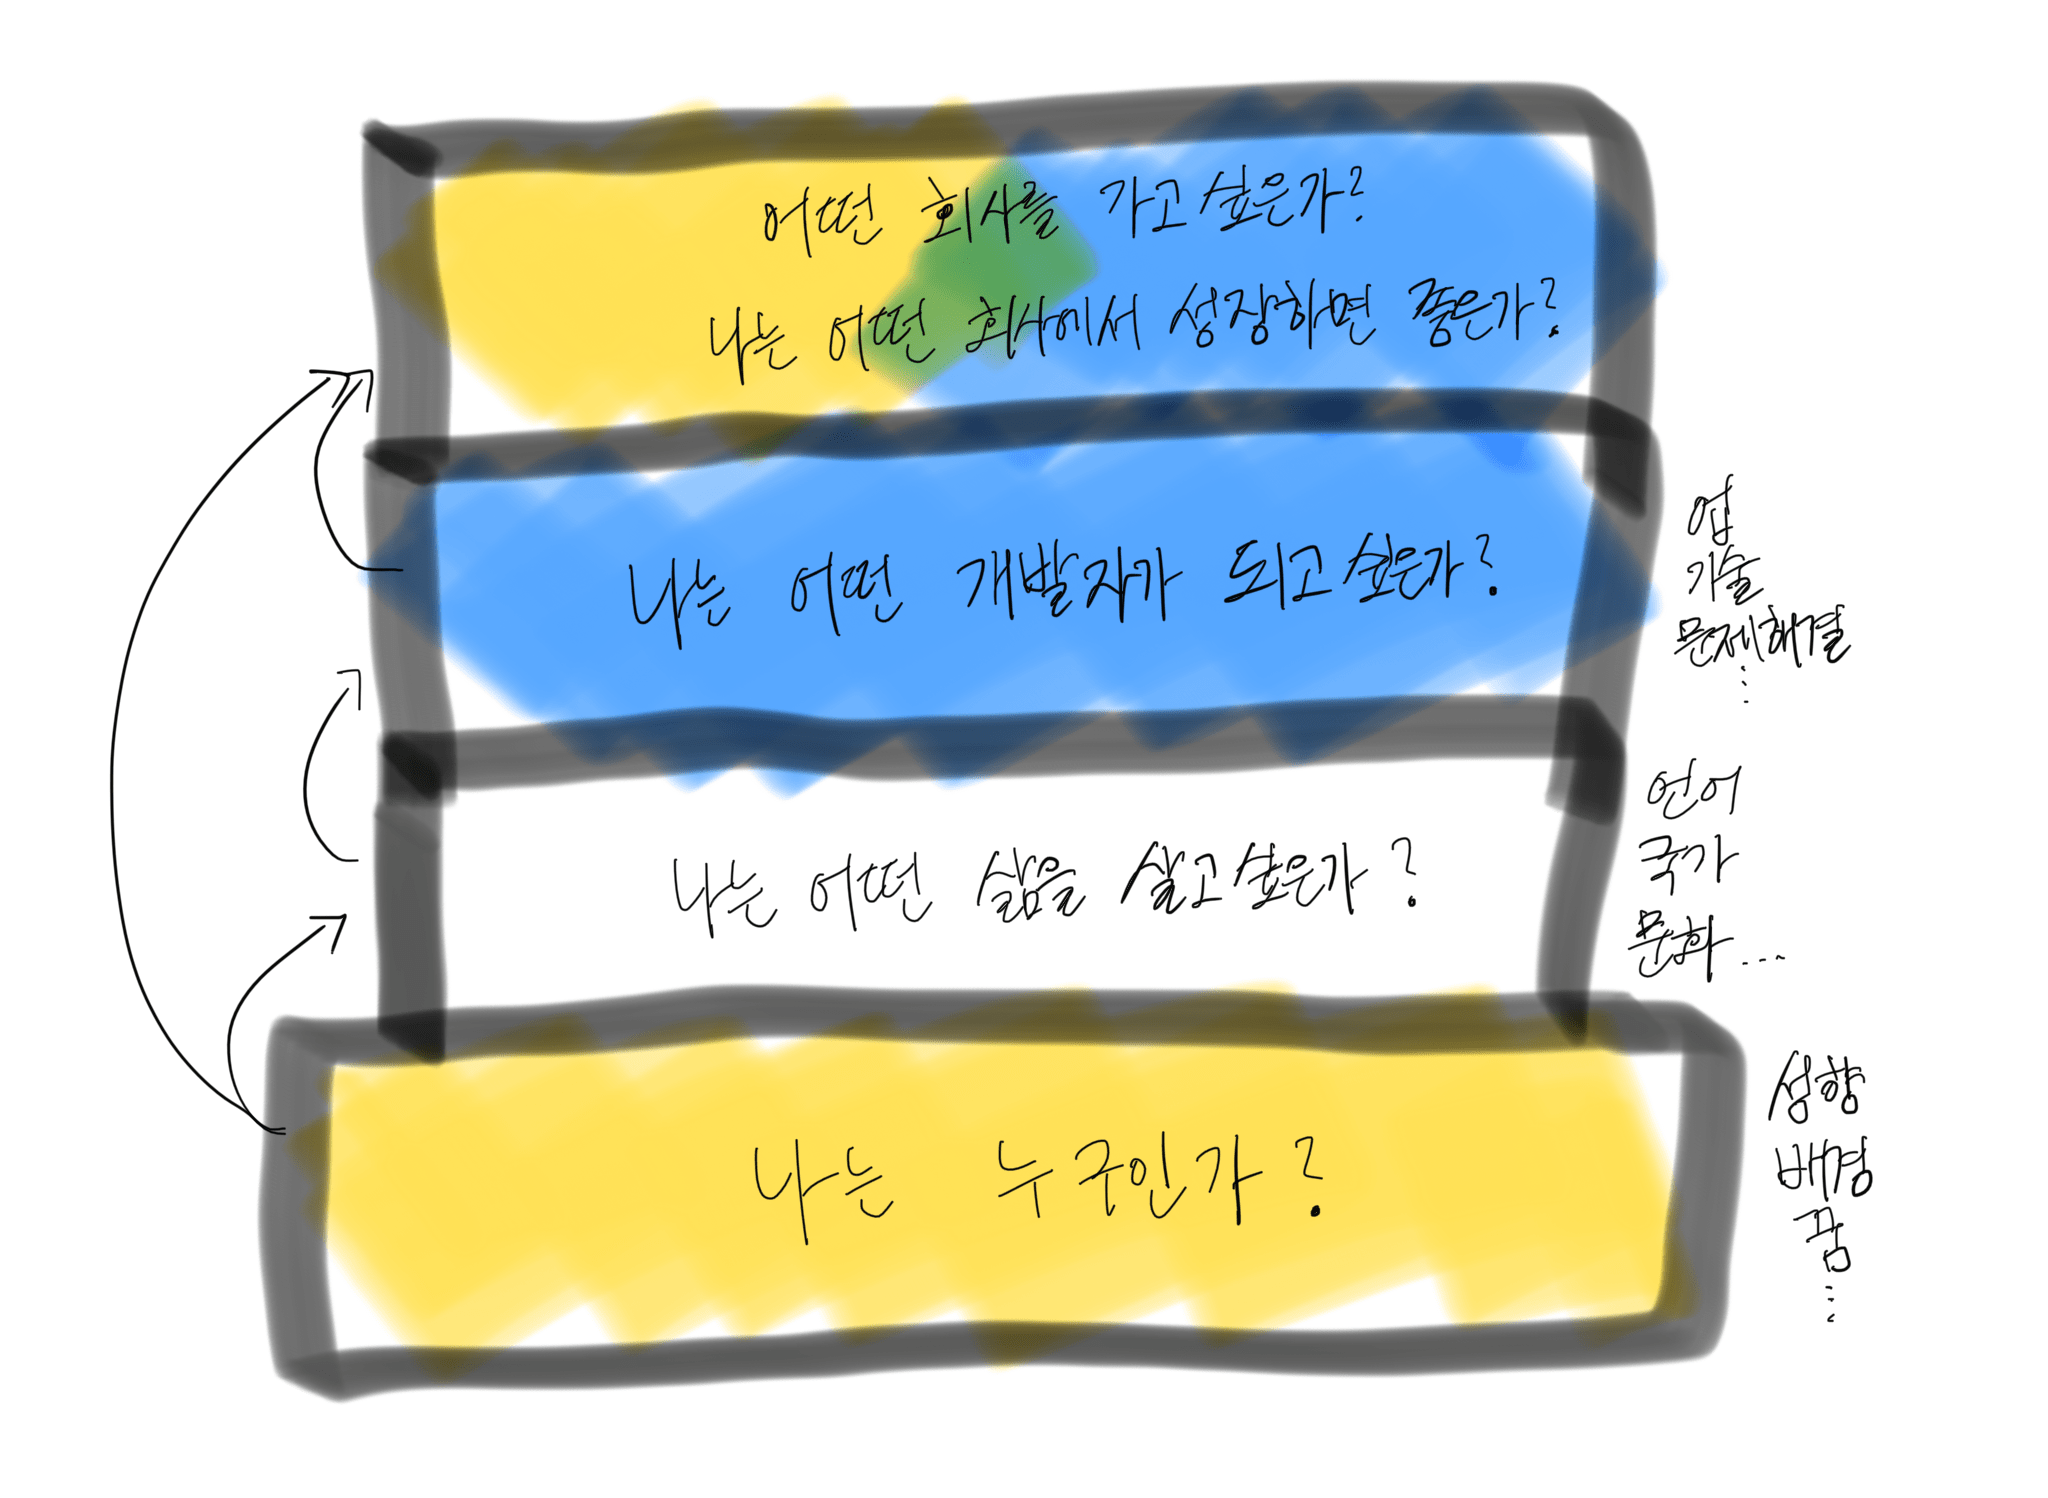 어떤 회사를 가고싶은가?
나는 어떤 회사에서 성장하면 좋은가?
나는 어떤 개발자가 되고싶은가?
업
기술
문제해결
⋮
나는 어떤 삶을 살고싶은가?
언어
국가
문화...
나는 누구인가?
성향
배경
꿈
⋮